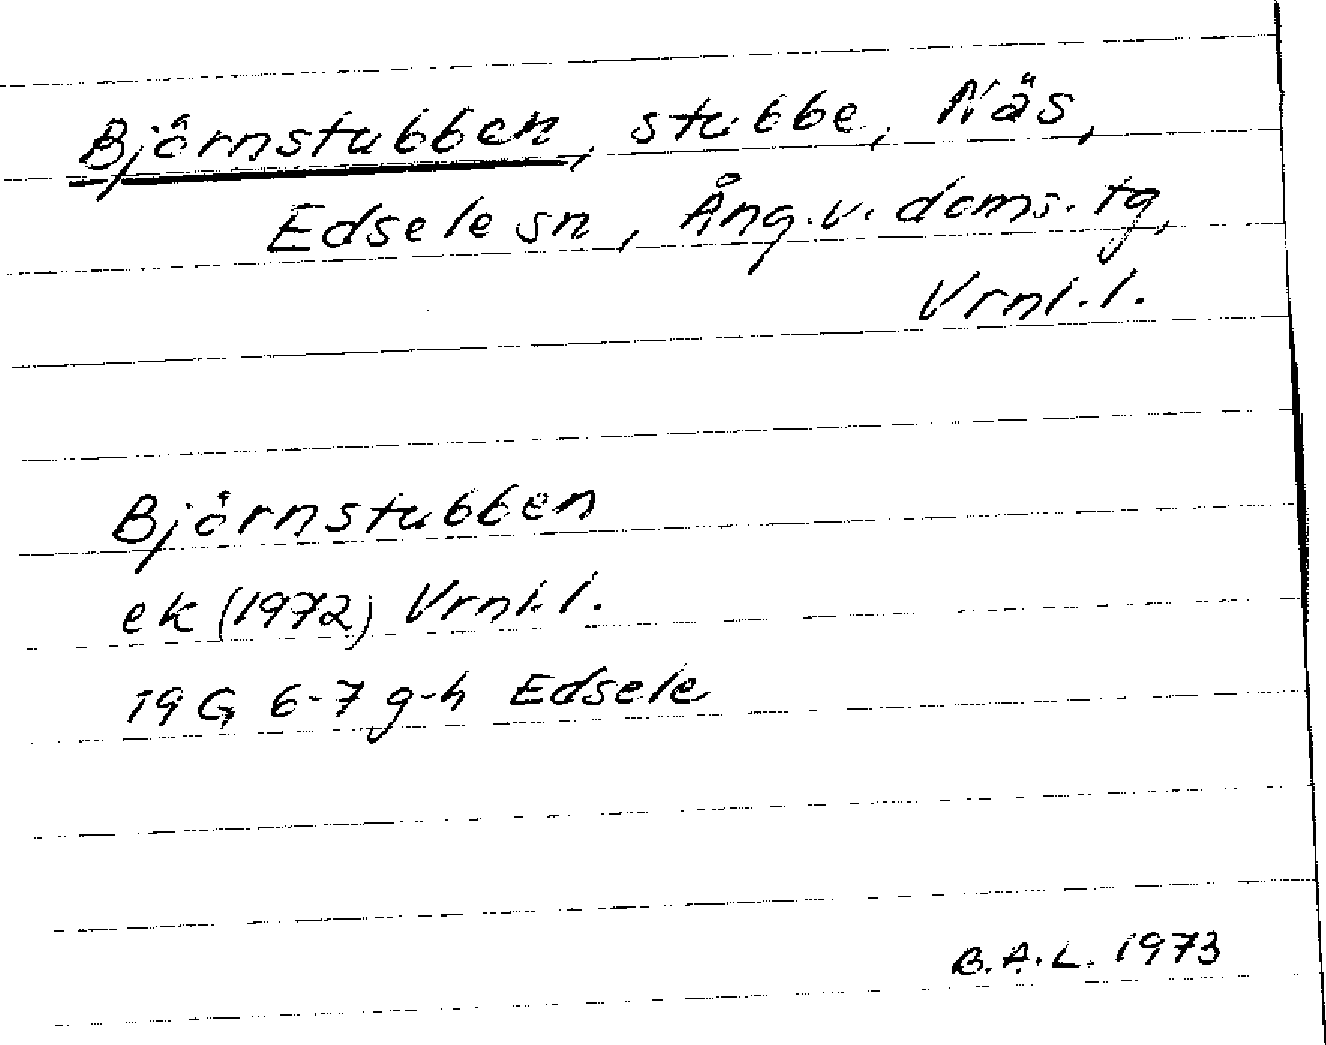 Björnstubben, stubbe, Näs,
Edsele sn, Ång. v. doms. tg,
Vrnl. l.
Björnstubben
ek (1972) Vrnl. l.
19 G 6-7 g-h Edsele
B.A.L. 1973